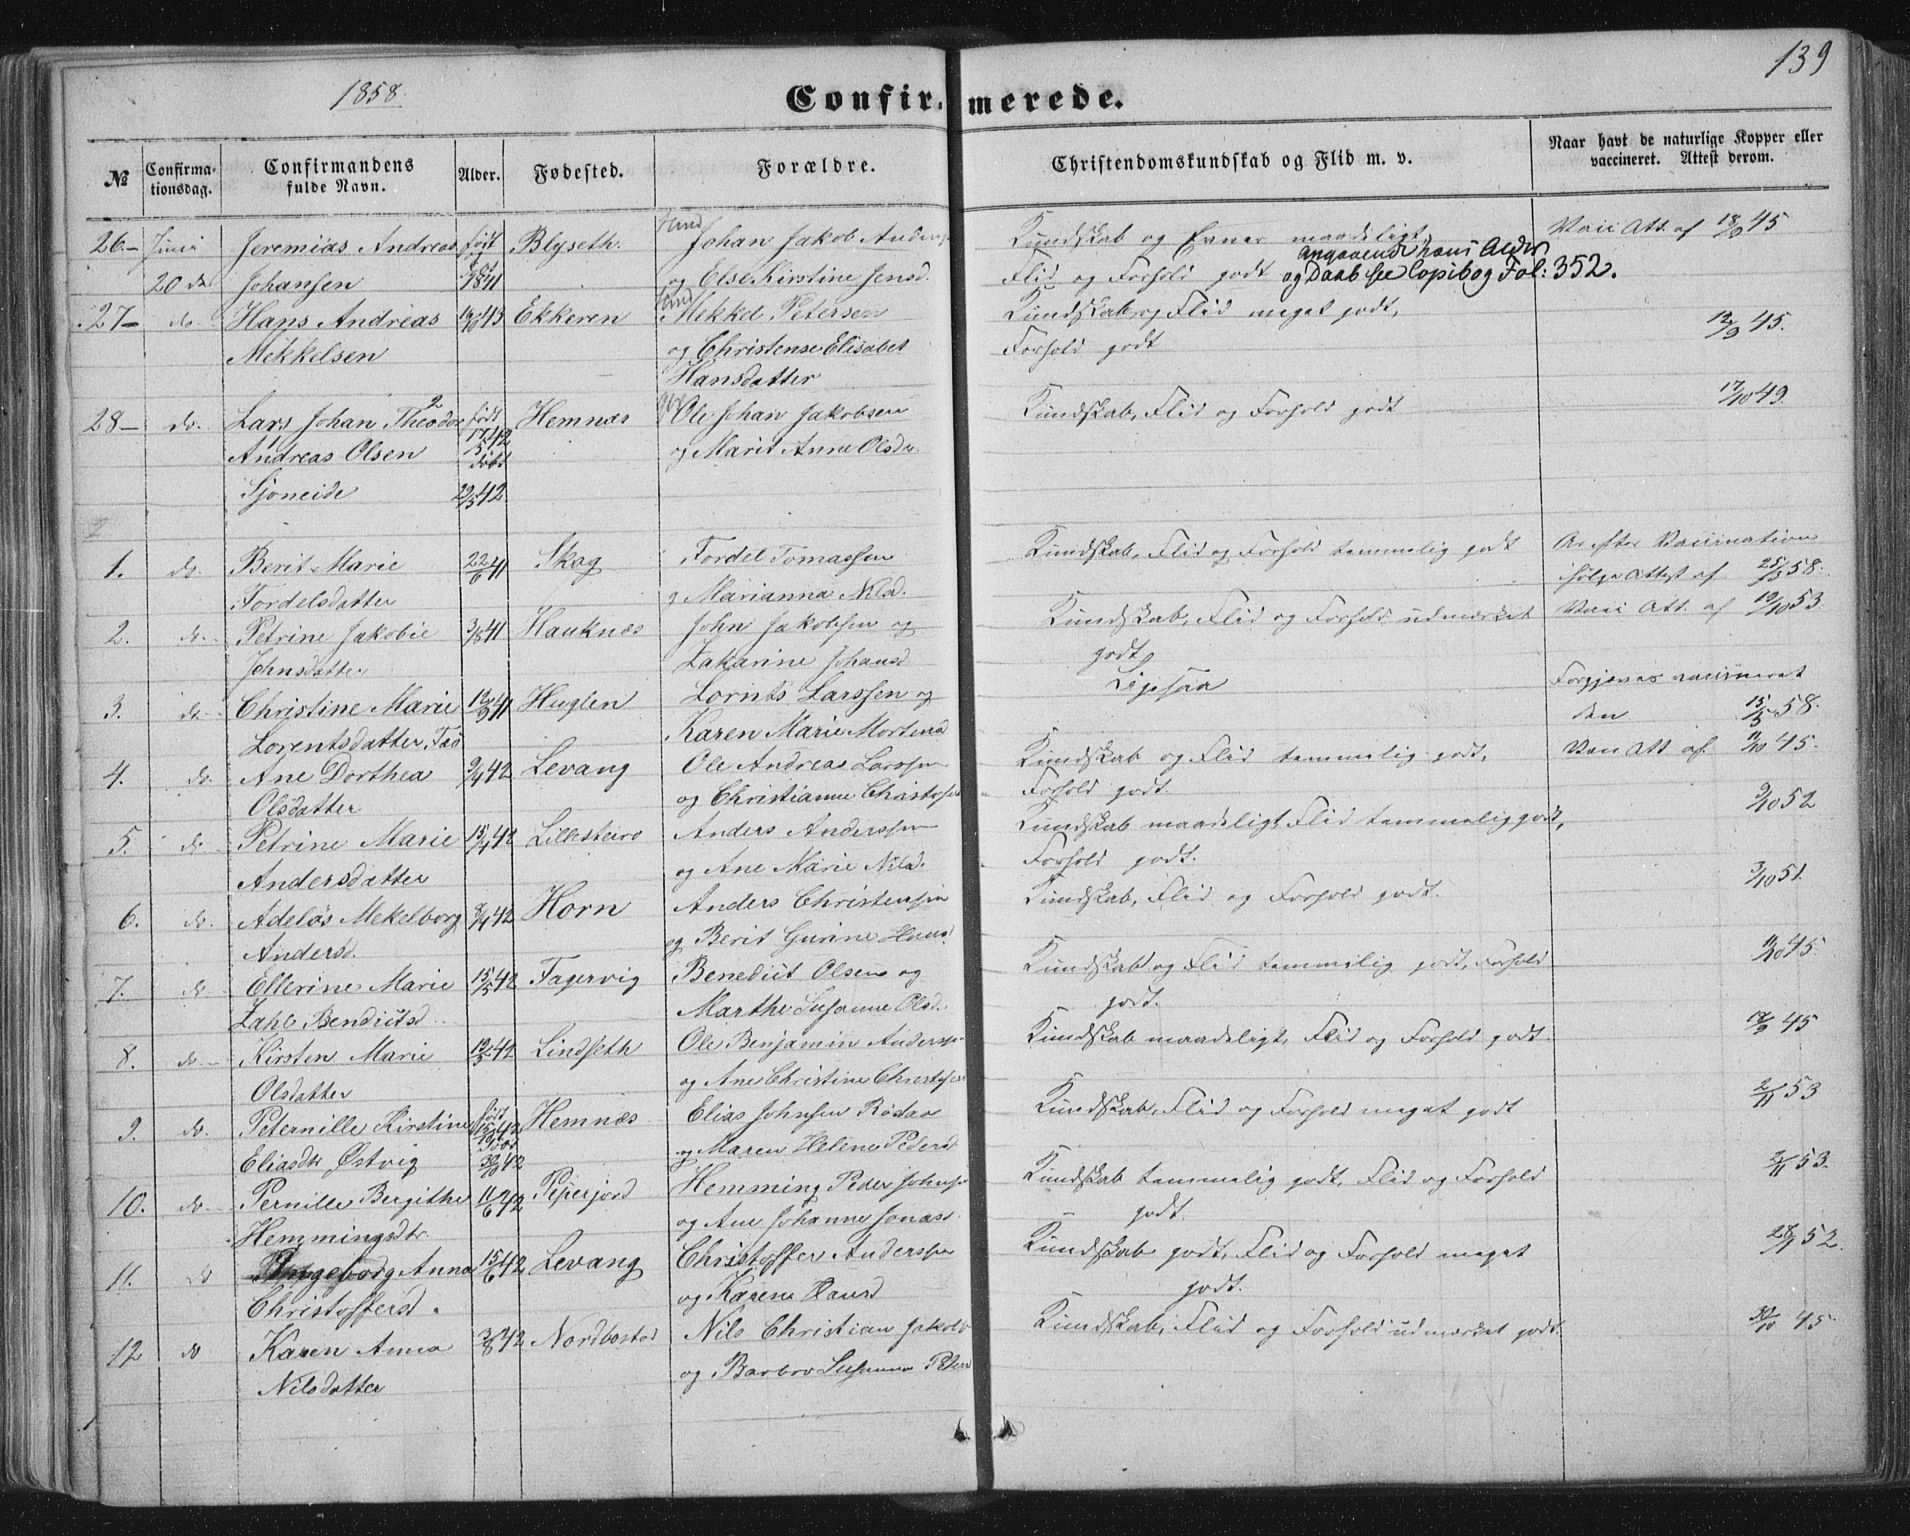 139
1858.
Confirmerede.
№ Confirmationsdag. Confirmandens fulde Navn. Alder. Fødested. Forældre. Christendomskundskab og Flid m. v. Naar havt de naturlige Kopper eller vaccineret. Attest derom.
26 Juni Jeremias Andreas født Blyseth Johan Jakob Anders Kundskab og Evner maadeligt, Vacc Att. af 18/9 45
20 de Johansen 1841 og Else Kirstine Jensd. Flid og Forhold godt angaaende hans Alder
og Daab see Copibog Fol: 352.
27 do. Hans Andreas 43 Ekkeren Mekkel Petersen Kundskab og Flid meget godt, 12/9 45.
Mekkelsen og Christense Elisabet Forhold godt
Hansdatter
28 do. Lars Johan Theodor født Hemnæs Ole Johan Jakobsen Kundskab, Flid og Forhold godt 17/10 49.
Andreas Olsen 17/5 42 og Marit Anne Olsdr
døbt
Sjoneide 29/5 42
1. do. Berit Marie 22/6 41 Skag Tordel Tomassen Kundskab, Flid og Forhold temmelig godt Ar efter Vaccination
Tordelsdatter og Marianna Nilsd. ifølge Attest af 25/5 58.
2. do. Petrine Jakobie 3/8 41 Hauknæs John Jakobsen og Kundskab, Flid og Forhold udmærket Vacc Att. af 19/10 53.
Johnsdatter Zakarine Johansd. godt
3. do. Christine Marie 12/9 41 Huglen Lornts Larssen og Ligesaa Forgjæves vaccineret
Lorentsdatter Karen Marie Mortensd den 15/5 58.
4. do. Ane Dorthea 9/4 42 Levang Ole Andreas Larssen Kundskab og Flid temmelig godt, Vacc Att af 11/10 45.
Olsdatter og Christianne Christofersd Forhold godt.
5. do. Petrine Marie 15/4 42 Lillesteiro Anders Anderssen Kundskab maadeligt Flid temmelig godt, 9/10 52
Andersdatter og Ane Marie Nilsd. Forhold godt.
6. do. Adelös Mekelborg 8/4 42 Horn Anders Christensen Kundskab, Flid og Forhold godt. 3/10 51.
Andersd. og Berit Gurine Hansd.
7. do Ellerine Marie 15/5 42 Fagervig Benedict Olsen og Kundskab og Flid temmelig godt, Forhold 11/10 45.
Zahl Bendictsd. Marthe Susanne Olsd. godt.
8. do Kirsten Marie 19/5 42 Lindseth Ole Benjamin Anderss Kundskab maadeligt, Flid og Forhold godt. 18/9 45
Olsdatter og Ane Christine Christofersd
9. do. Peternille Kirstine født Hemnæs Elias Johnsen Rödaa Kundskab, Flid og Forhold meget godt 2/11 53
Eliasdtr Østvig 42 og Maren Helene Pedersd
10. do. Pernille Bergithe 11/6 42 Peperjord Hemming Peder Johns Kundskab temmelig godt, Flid og Forhold 2/11 53.
Hemmingsdtr og Ane Johanne Jonasd. godt.
11. do Ingeborg Anna 15/6 42 Levang Christoffer Anderssen Kundskab godt, Flid og Forhold meget 52.
Christoffersd. og Karen Hansd godt.
12 do Karen Anna 3/8 42 Nordbostad Nils Christian Jakobs Kundskab, Flid og Forhold udmærket godt. 30/10 45
Nilsdatter og Barbro Susanna Peters